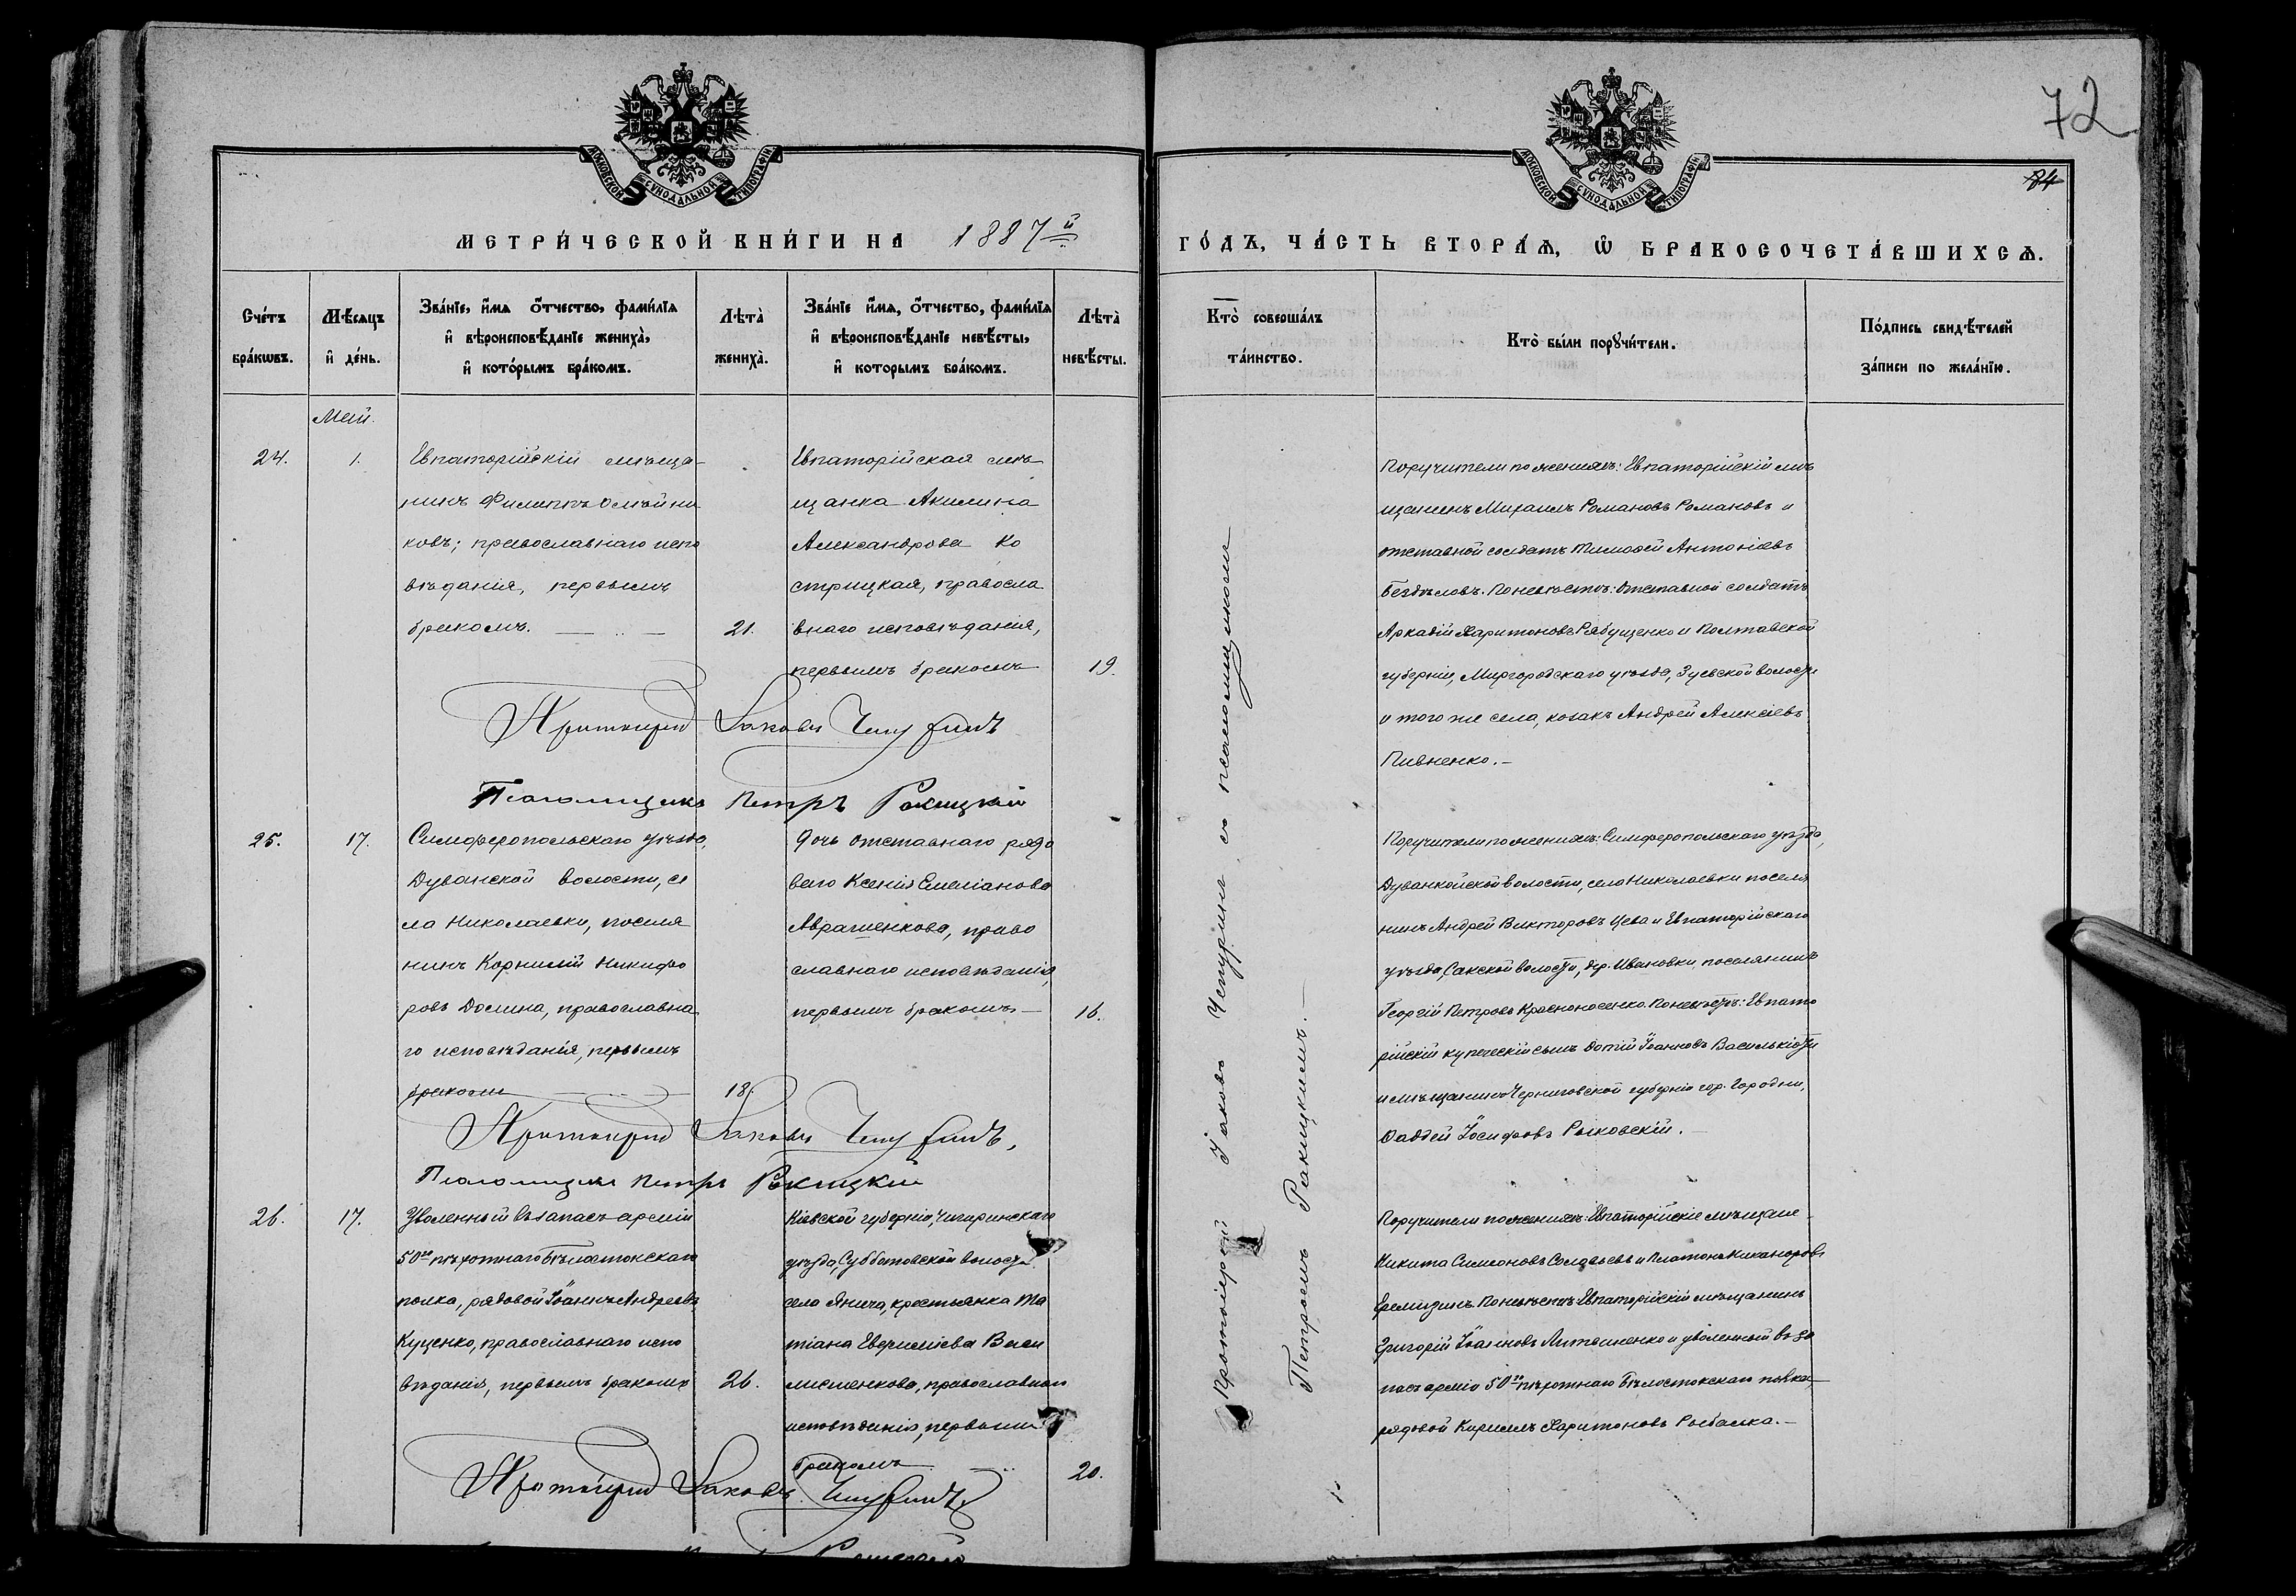 72
84
МОСКОВСКОЙ СѴНОДАЛЬНОЙ ТИПОГРАФІИ
МОСКОВСКОЙ СѴНОДАЛЬНОЙ ТИПОГРАФІИ
МЕТРИ́ЧЕСКОЙ КНИ́ГИ НА 1887й
ГО́ДЪ, ЧА́СТЬ ВТОРА́Ѧ, Ѡ҆ БРАКОСОЧЕТА́ВШИХСѦ.
Сче́тъ бра́кѡвъ.
Мѣ́сяцъ и҆ де́нь.
Зва́нїе, и҆́мѧ ѻ҆́тчество, фами́лїѧ
и҆ вѣроисповѣ́данїе жениха̀,
и҆ кото́рымъ бра́комъ.
Лѣта̀ жениха̀.
Зва́нїе и҆́мѧ, ѻ҆́тчество, фами́лїѧ
и҆ вѣроисповѣ́данїе невѣ́сты,
и҆ которымъ бра́комъ.
Лѣта̀ невѣ́сты.
Кто̀ соверша́лъ та́инство.
Кто̀ бы́ли порꙋчи́тели.
По́дпись свидѣ́телей за́писи по жела́нїю.
Май.
24.
1.
Евпаторійскій мѣща-
нинъ Филиппъ Олейни
ковъ; православнаго испо
вѣданія, первымъ
бракомъ.
21.
Евпаторійская мѣ
щанка Акилина
Александрова Ко
стрицкая, правосла
внаго исповѣданія,
первымъ бракомъ
19.
Поручители по женихѣ: Евпаторійскій мѣ
щанинъ Михаилъ Романовъ Романовъ и
отставной солдатъ Тимофей Антоніевъ
Бездѣловъ. По невѣстѣ: Отставной солдатъ
Аркадій Харитоновъ Рябущенко и Полтавской
губерніи, Миргородскаго уѣзда, Зуевской волости
и того же села, козакъ Андрей Алексіевъ
Пивненко.-
Протоіерей Іаковъ Чепуринъ
Псаломщикъ Петръ Ракицкій
25.
17.
Симферопольскаго уѣзда,
Дуванской волости, се
ла Николаевки, поселя
нинъ Корнилій Никифо
ровъ Долина, православна
го исповѣданія, первымъ
бракомъ
18.
Дочь отставнаго рядо
ваго Ксенія Емеліанова
Авраменкова, право
славнаго исповѣданія,
первымъ бракомъ
16.
Поручители по женихѣ: Симферопольскаго уѣзда,
Дуванкойской волости, села Николаевки поселя
нинъ Андрей Викторовъ Цева и Евпаторійскаго
уѣзда, Сакской волости, дер. Ивановки, поселянинъ
Георгій Петровъ Красноносенко. По невѣстѣ: Евпато
рійскій купеческій сынъ Фотій Іоанновъ
и мѣщанинъ Черниговской губерніи гор. Городни,
Фаддей Іосифовъ Рыковскій.
Протоіерей Іаковъ Чепуринъ,
Псаломщикъ Петръ Ракицкій
26.
17.
Уволенный въ запасъ арміи
50го пѣхотнаго Бѣлостокскаго
полка, рядовой Іоаннъ Андреевъ
Куценко, православнаго испо
вѣданія, первымъ бракомъ
26.
Кіевской губерніи, Чигиринскаго
уѣзда, Субботовской волости
села Янича, крестьянка Та
тіана Васи
православнаго
исповѣданія, первымъ
бракомъ
20.
Поручители по женихѣ: Евпаторійскіе мѣщане
Никита Симеоновъ Соловьевъ и Платонъ Никаноровъ
По невѣстѣ: Евпаторійскій мѣщанинъ
Григорій Іоанновъ Литвиненко и уволенный въ за
пасъ арміи 50го пѣхотнаго Бѣлостокскаго полка,
рядовой Кириллъ Харитоновъ Рыбалка.-
Протоіерей Іаковъ Чепуринъ
Протоіерей Іаковъ Чепуринъ съ псаломщикомъ
Петромъ Ракицкимъ.-